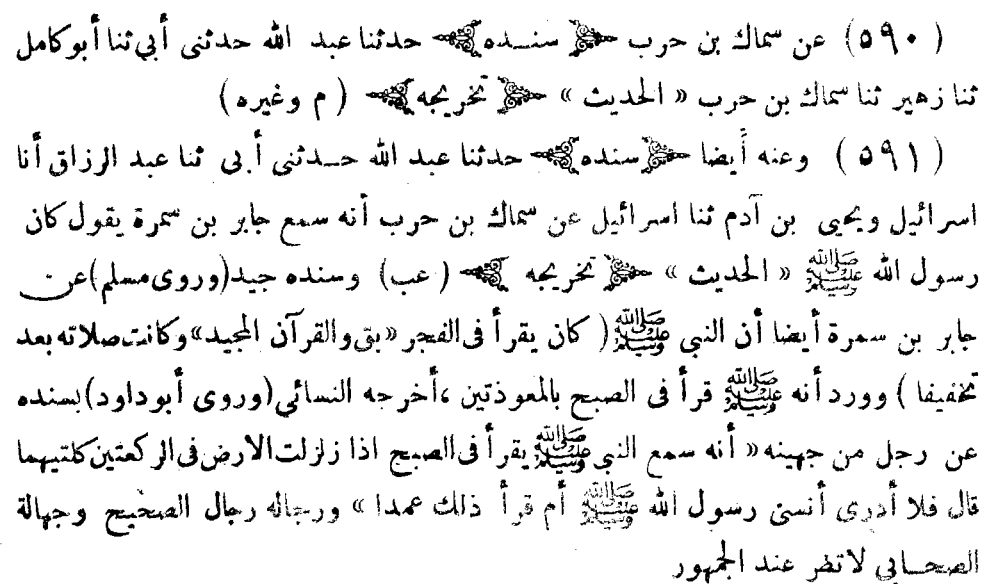 (٥٩٠) عن سماك بن حرب ﴿سنده﴾ حدثنا عبد الله حدثنى أبي ثنا أبو كامل
ثنا زهير ثنا سماك بن حرب « الحديث » ﴿تخريجه﴾ (م وغيره)
(٥٩١) وعنه أيضا ﴿سنده﴾ حدثنا عبد الله حدثنى أبى ثنا عبد الرزاق أنا
اسرائيل ويحيى بن آدم ثنا اسرائيل عن سماك بن حرب أنه سمع جابر بن سمرة يقول كان
رسول الله ﷺ « الحديث » ﴿تخريجه﴾ (عب) وسنده جيد (وروى مسلم) عن
جابر بن سمرة أيضا أن النبي ﷺ (كان يقرأ فى الفجر « بق والقرآن المجيد» وكانت صلاته بعد
تخفيفا) وورد أنه ﷺ قرأ فى الصبح بالمعوذتين ،أخرجه النسائي (وروى أبو داود) بسنده
عن رجل من جهينه « أنه سمع النبي ﷺ يقرأ فى الصبح اذا زلزلت الارض فى الركعتين كلتيهما
قال فلا أدرى أنسى رسول الله ﷺ أم قرأ ذلك عمدا » ورجاله رجال الصحيح وجهالة
الصحابي لا تضر عند الجمهور